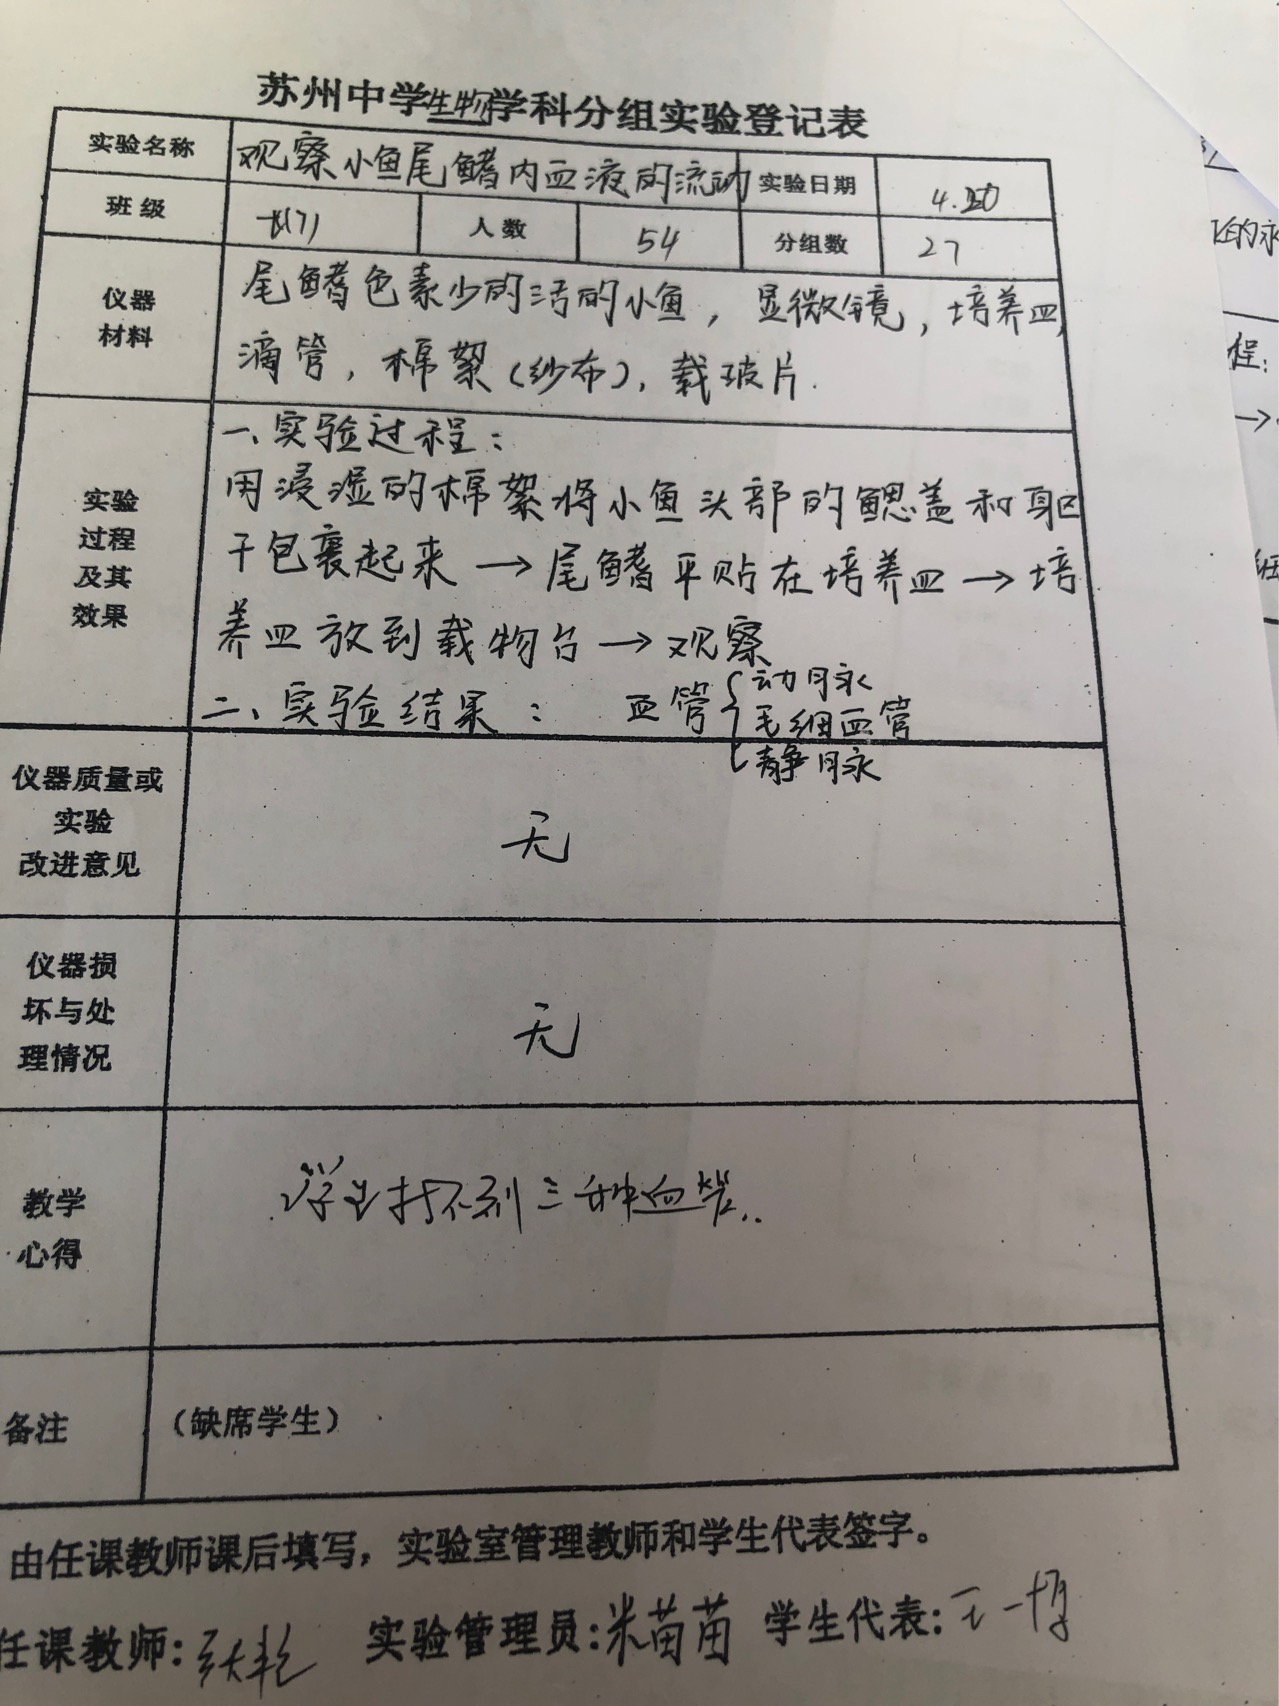 苏州中学生物学科分组实验登记表
实验名称 观察小鱼尾鳍内血液的流动 实验日期 4.20
班级 七(7) 人数 54 分组数 27
仪器
材料
尾鳍色素少的活的小鱼，显微镜，培养皿，
滴管，棉絮（纱布），载玻片.
实验
过程
及其
效果
一、实验过程：
用浸湿的棉絮将小鱼头部的鳃盖和躯
干包裹起来→尾鳍平贴在培养皿→培
养皿放到载物台→观察
二、实验结果： 血管{动脉
毛细血管
静脉
仪器质量或
实验
改进意见
无
仪器损
坏与处
理情况
无
教学
心得
学生找不到三种血管..
备注
（缺席学生）
由任课教师课后填写，实验室管理教师和学生代表签字。
任课教师: 实验管理员:米苗苗 学生代表:王一
程: